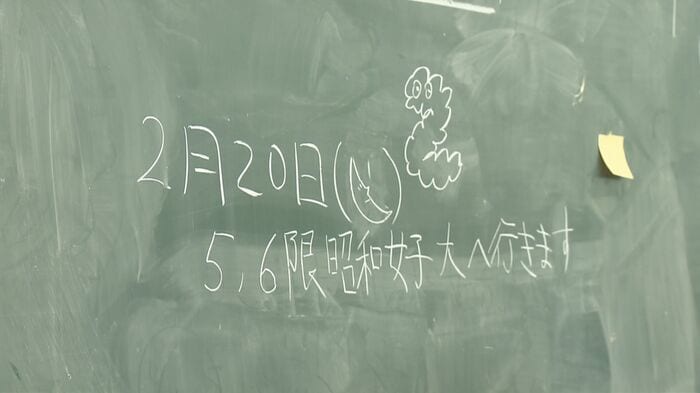 2月20日()
5,6限昭和女子大へ行きます